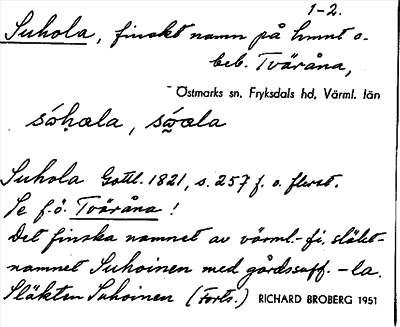 1-2.
Suhola, finskt namn på hmnt o.
beb. Tväråna,
Östmarks sn, Fryksdals hd, Värml. län
Suhola Gottl. 1821, s. 257 f. o. flerst.
Se f.ö. Tväråna!
Det finska namnet av värml.-fi. släkt-
namnet Suhoinen med gårdssuff. -la.
Släkten Suhoinen (Forts.) RICHARD BROBERG 1951